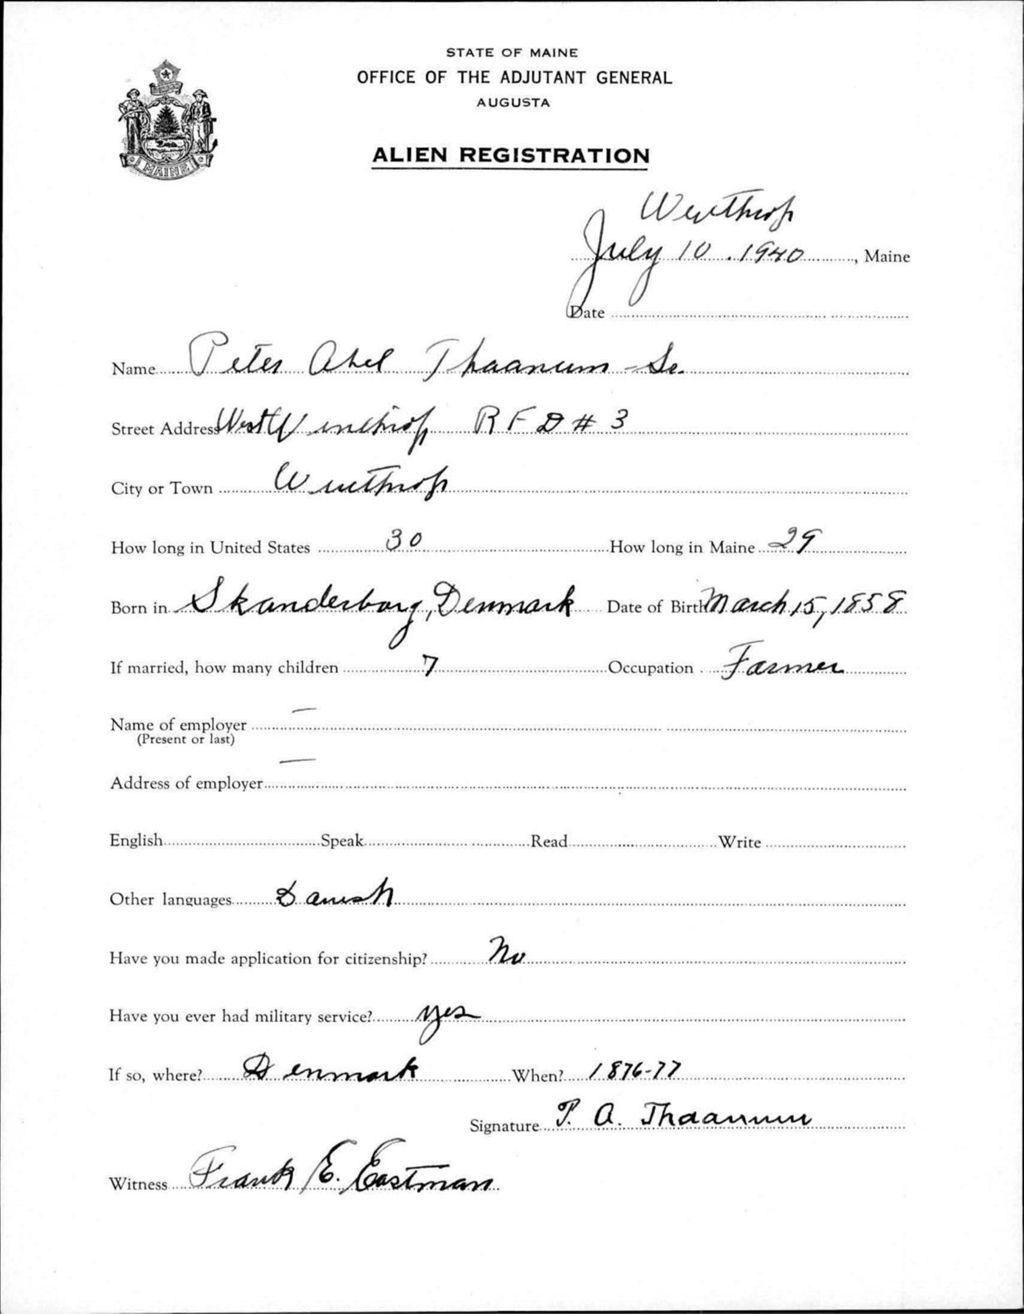 STATE OF MAINE
OFFICE OF THE ADJUTANT GENERAL
AUGUSTA
ALIEN REGISTRATION
MAINE
Winthrop
July 10. 1940, Maine
Date
Name Peter Abel Thaanum Sr.
Street Address West Winthrop RFD # 3
City or Town Winthrop
How long in United States 30 How long in Maine 29
Born in Skanderborg, Denmark Date of Birth March 15, 1858
If married, how many children 7 Occupation Farmer
Name of employer —
(Present or last)
Address of employer —
English Speak Read Write
Other languages Danish
Have you made application for citizenship? No
Have you ever had military service? yes
If so, where? Denmark When? 1876-77
Signature P. A. Thaanum
Witness Frank E. Eastman